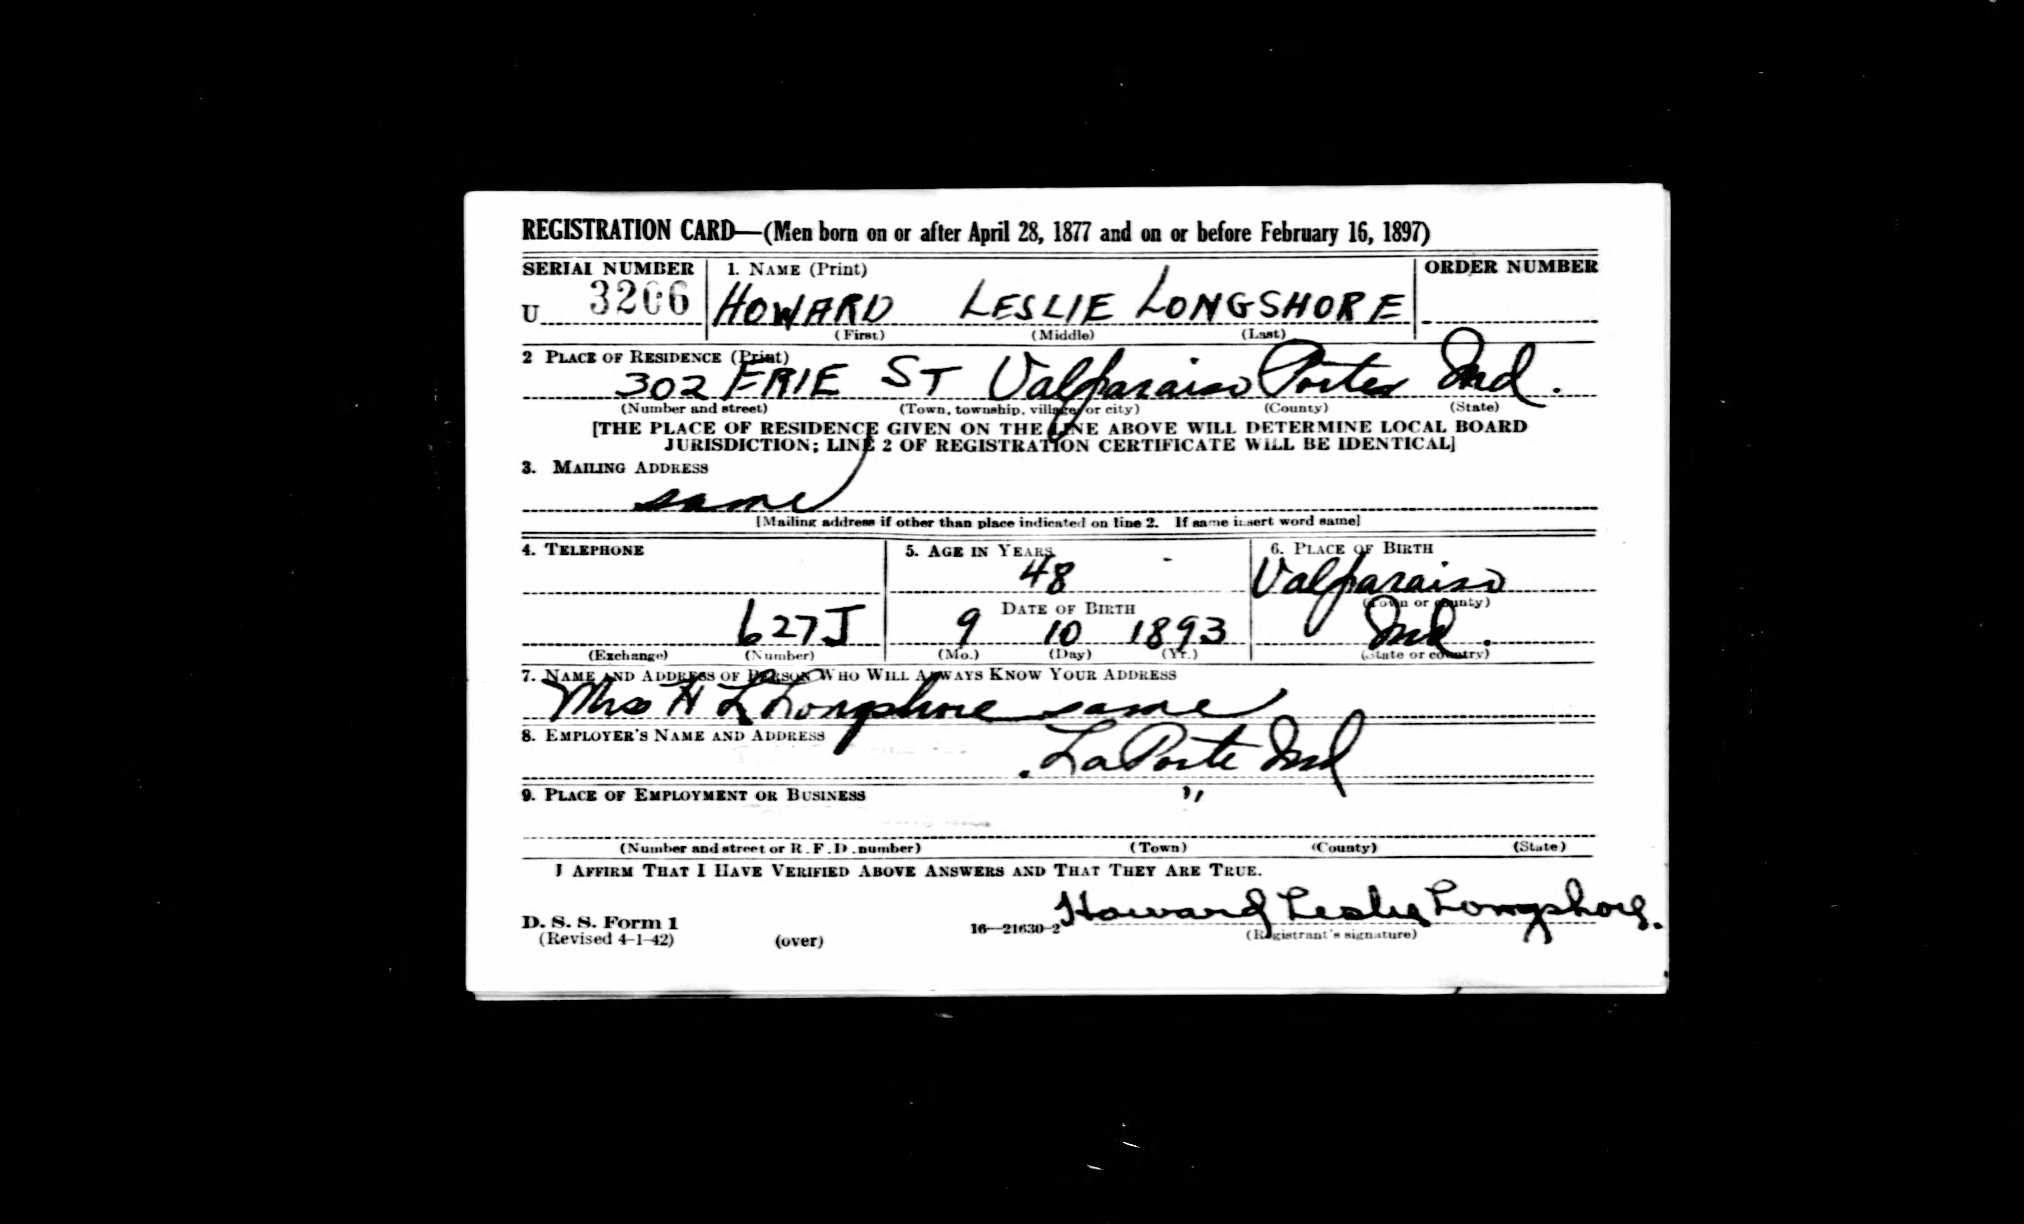 REGISTRATION CARD—(Men born on or after April 28, 1877 and on or before February 16, 1897)
SERIAL NUMBER 1. NAME (Print) ORDER NUMBER
U 3206 HOWARD LESLIE LONGSHORE
(First) (Middle) (Last)
2 PLACE OF RESIDENCE (Print)
302 ERIE ST Valparaiso Porter Ind.
(Number and street) (Town, township, village, or city) (County) (State)
[THE PLACE OF RESIDENCE GIVEN ON THE LINE ABOVE WILL DETERMINE LOCAL BOARD
JURISDICTION; LINE 2 OF REGISTRATION CERTIFICATE WILL BE IDENTICAL]
3. MAILING ADDRESS
same
[Mailing address if other than place indicated on line 2. If same insert word same]
4. TELEPHONE 5. AGE IN YEARS 6. PLACE OF BIRTH
48 Valparaiso
DATE OF BIRTH (Town or county)
627J 9 10 1893 Ind.
(Exchange) (Number) (Mo.) (Day) (Yr.) (State or country)
7. NAME AND ADDRESS OF PERSON WHO WILL ALWAYS KNOW YOUR ADDRESS
Mrs H L Longshore same
8. EMPLOYER'S NAME AND ADDRESS
LaPorte Ind
9. PLACE OF EMPLOYMENT OR BUSINESS "
(Number and street or R. F. D. number) (Town) (County) (State)
I AFFIRM THAT I HAVE VERIFIED ABOVE ANSWERS AND THAT THEY ARE TRUE.
Howard Leslie Longshore.
D. S. S. Form 1 16—21630-2
(Revised 4-1-42) (over) (Registrant's signature)